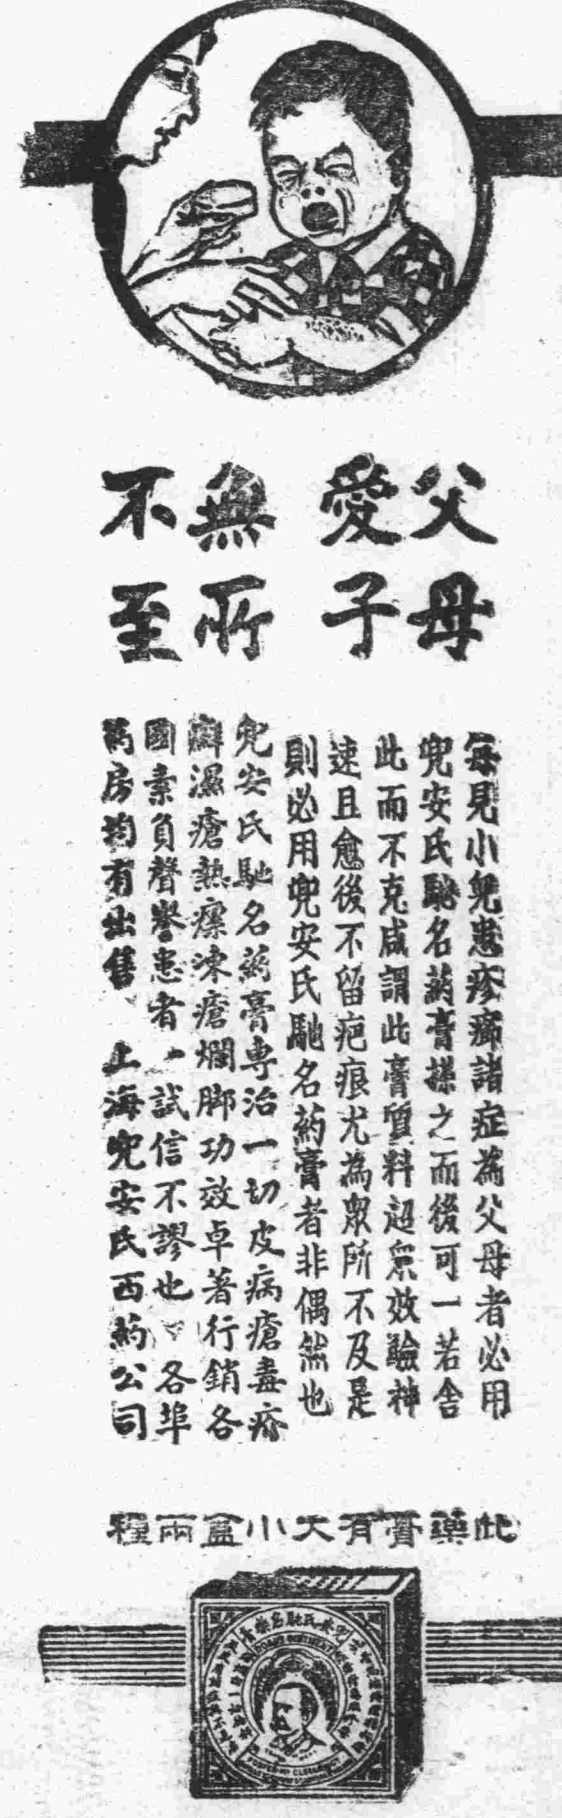 父母
愛子
無所
不至
每見小兒患疹痲諸症為父母者必用
兜安氏馳名葯膏搽之而後可一若舍
此而不克咸謂此膏質料超眾效驗神
速且愈後不留疤痕尤為眾所不及是
則必用兜安氏馳名葯膏者非偶然也
兜安氏馳名葯膏專治一切皮病瘡毒疥
癬濕瘡熱瘰凍瘡爛脚功效卓著行銷各
國素負聲譽患者一試信不謬也 各埠
葯房均有出售 上海兜安氏西葯公司
此藥膏有大小盒兩種